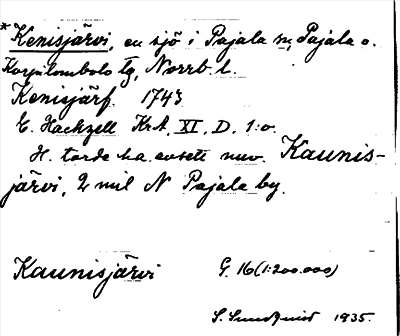 * Kenisjärvi, en sjö i Pajala sn, Pajala o.
Korpilombolo tg, Norrb. l.
Kenisjärf. 1743
E. Hackzell KrA XI. D. 1:o.
H. torde ha avsett nuv. Kaunis-
järvi, 2 mil N Pajala by.
Kaunisjärvi G. 16 (1:200.000)
S. Sundqvist 1935.